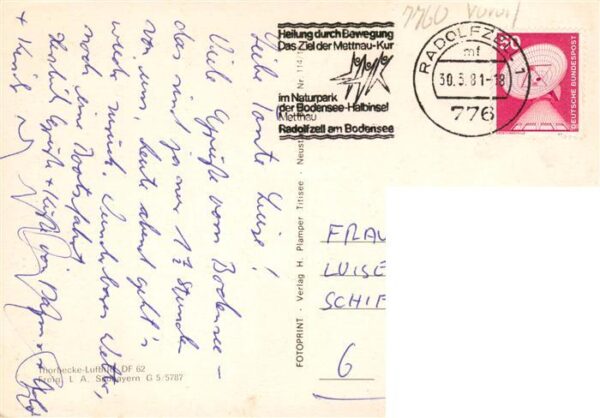 7760
Heilung durch Bewegung
Das Ziel der Mettnau-Kur
im Naturpark
der Bodensee-Halbinsel
Mettnau
Radolfzell am Bodensee
RADOLFZELL 1
mf
30.5.81-18
776
50
DEUTSCHE BUNDESPOST
Liebe Tante Luise!
Viele Grüße vom Bodensee –
das sind ja nur 1½ Stunde
von uns. Heute abend geht's
wieder zurück. Wunderbares Wetter,
noch eine Bootsfahrt
Herzl. Grüße + Küsse von
FOTOPRINT · Verlag H. Plamper Titisee · Neust
Nr 114
Thorbecke-Luftbild DF 62
Freig. I. A. Südbayern G 5/5787
FRAU
LUISE
SCHIF
6